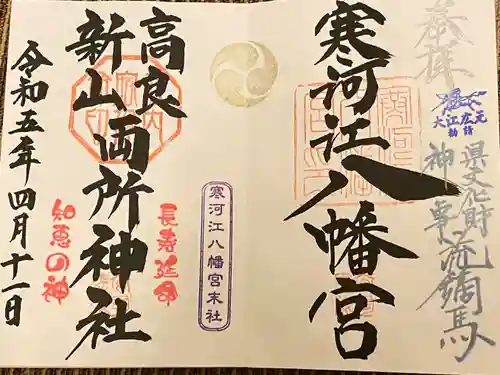 奉拝
大江広元
勧請
県文化財
神事流鏑馬
寒河江八幡宮
寒河江八幡宮末社
長寿延命
高良
新山両所神社
知恵の神
令和五年四月十一日